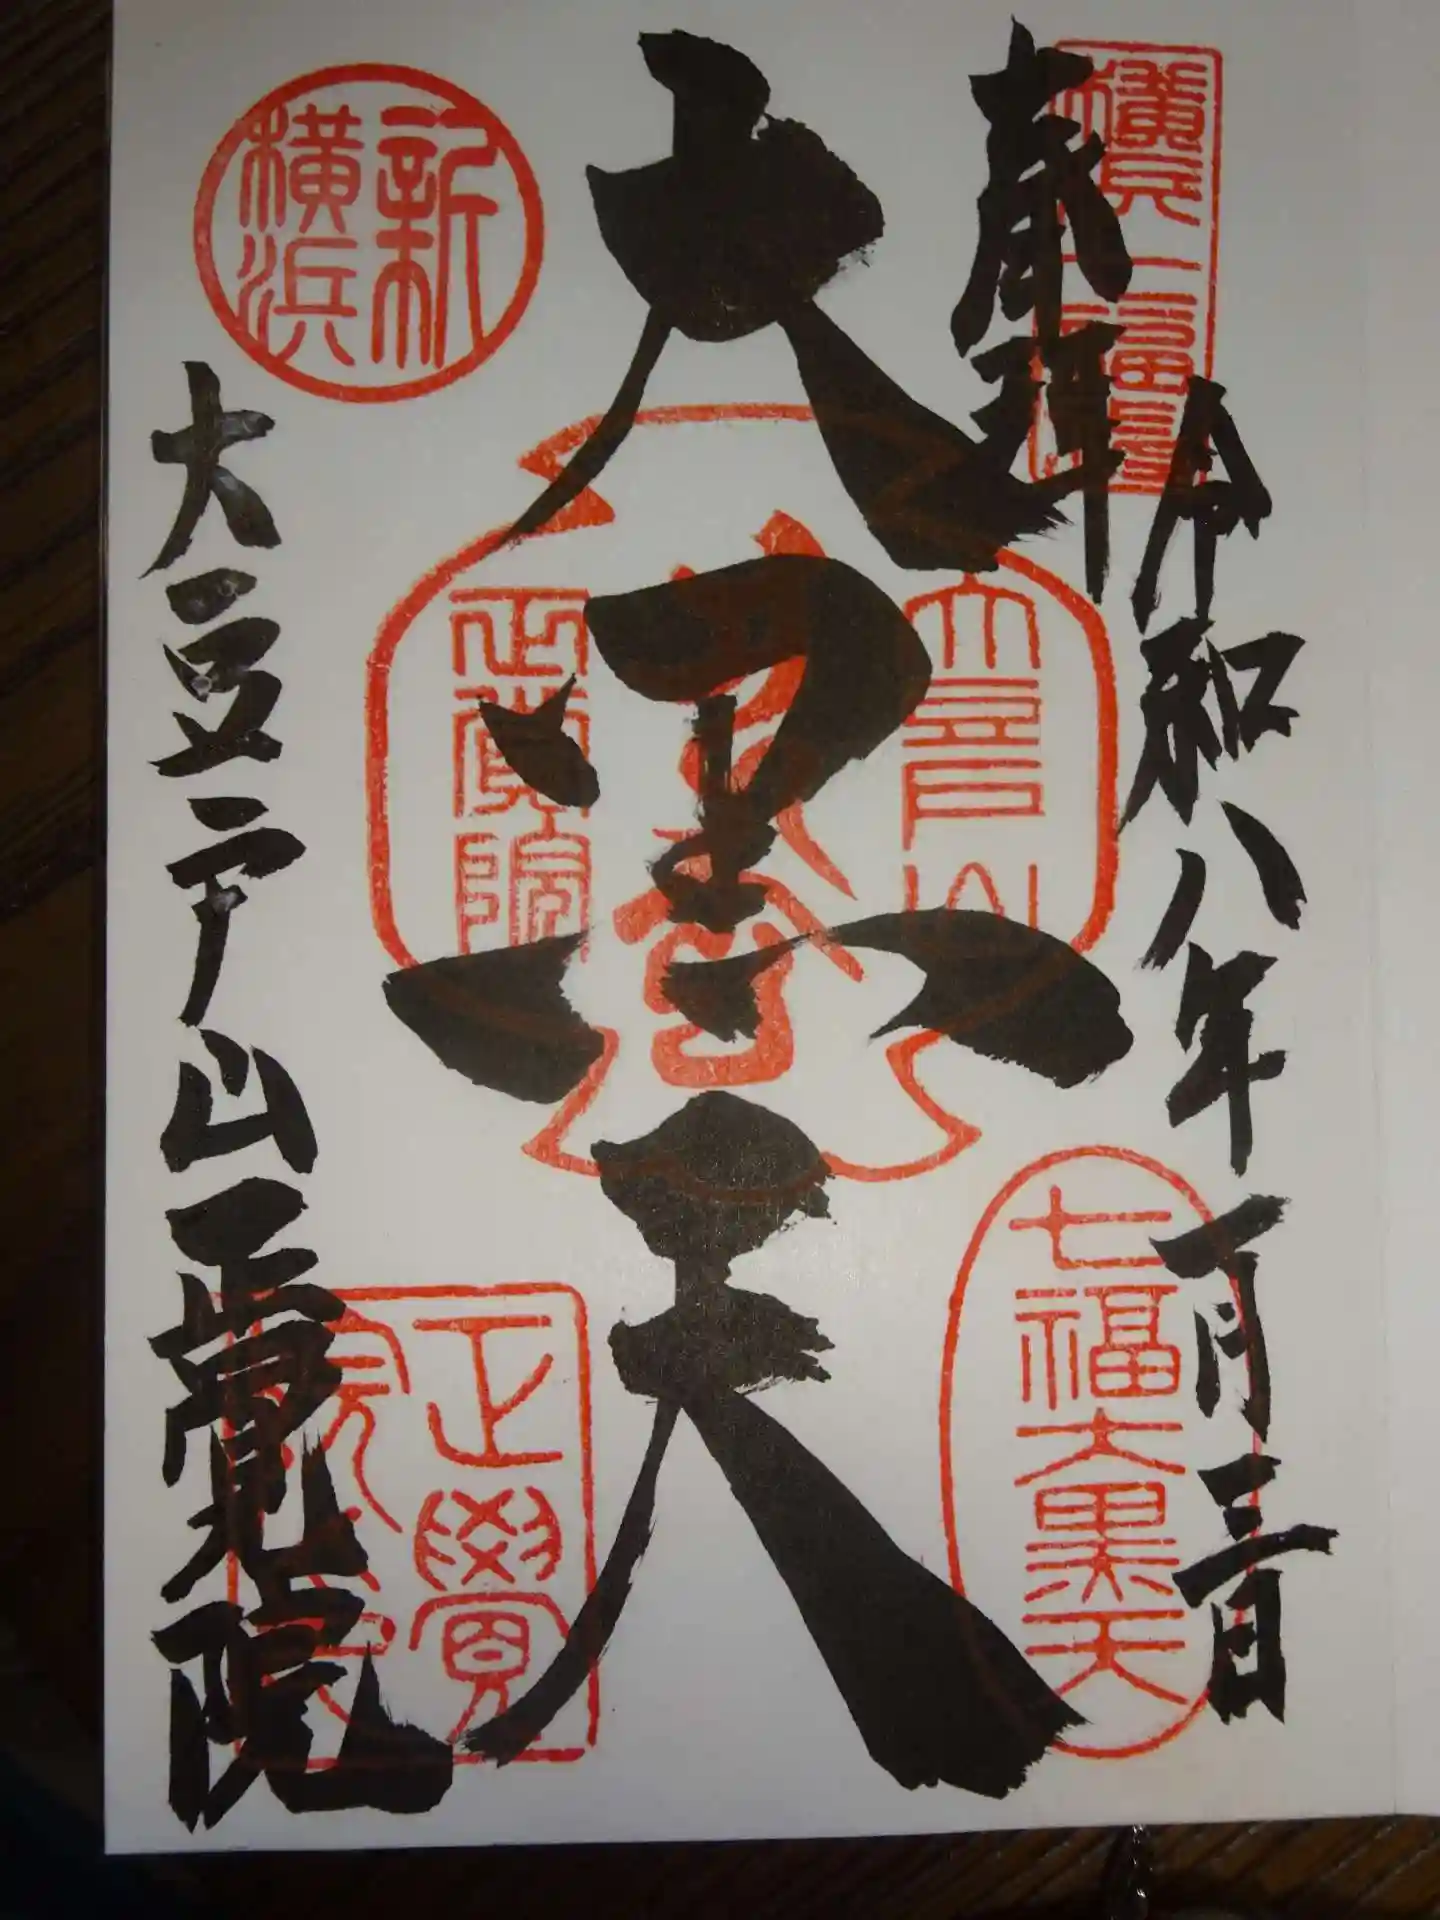 奉拝
令和八年一月三日
七福大黒天
大黒天
大豆戸山
正覚院
新
横浜
大豆戸山正覚院
正覺